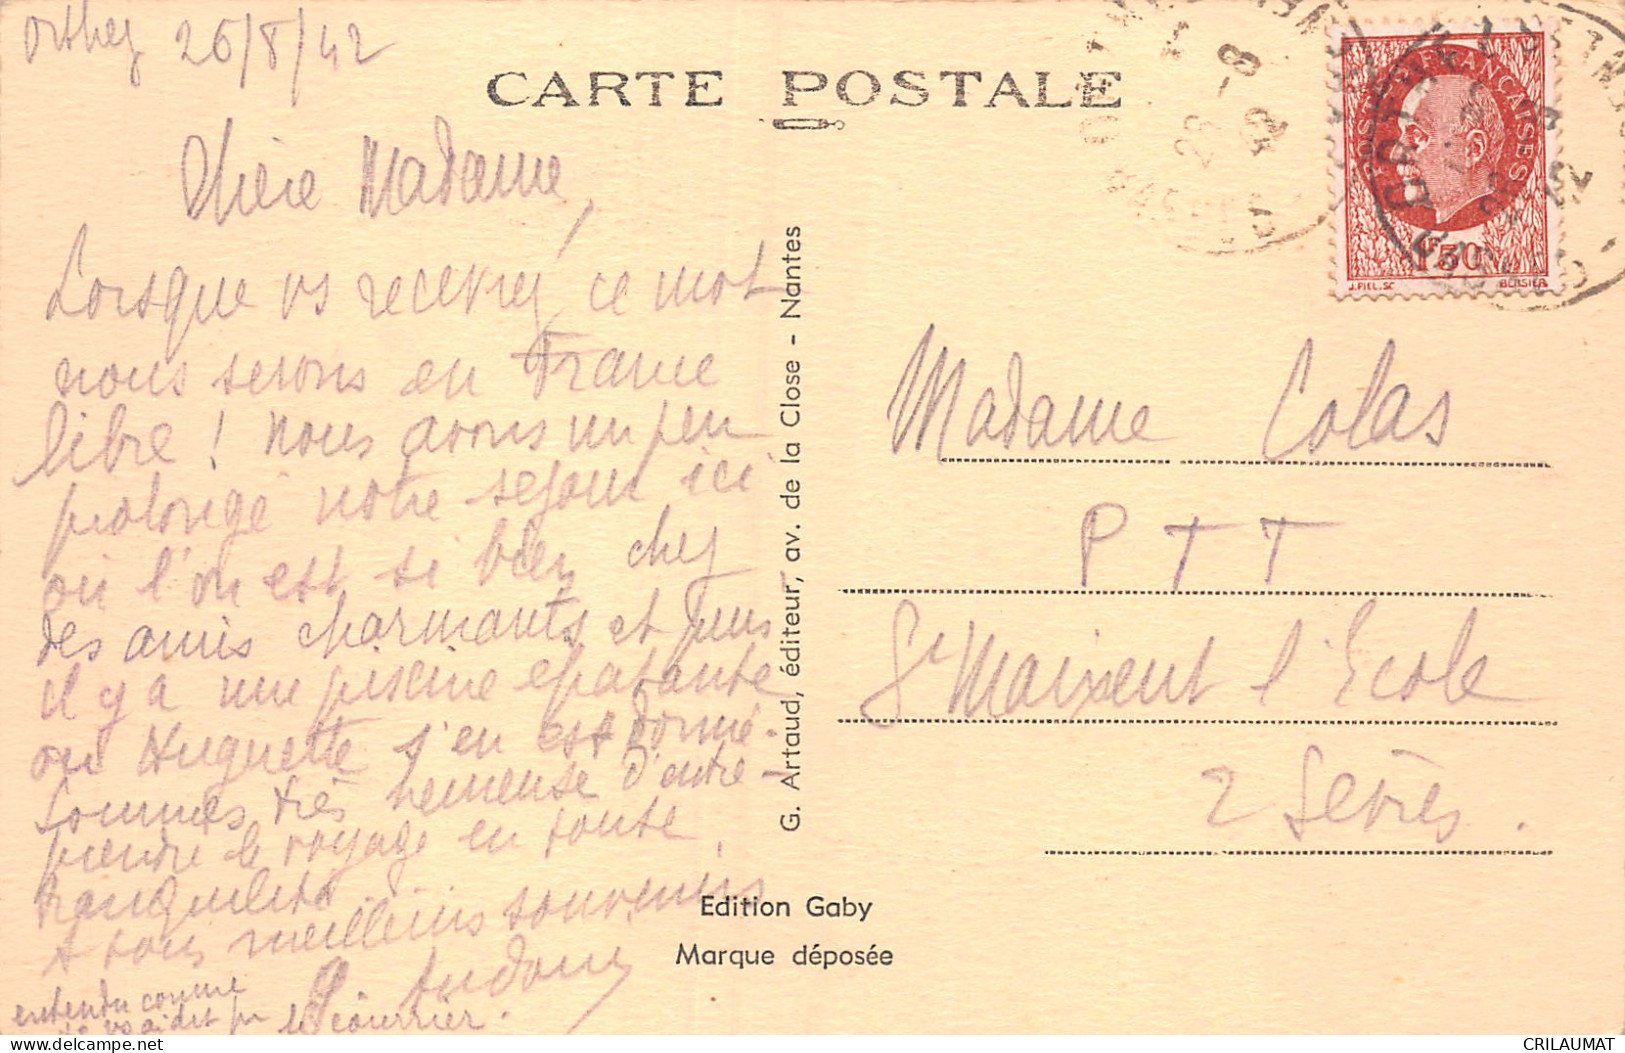 Orthez 26/8/42
CARTE POSTALE
Chère Madame,
Lorsque vs recevrez ce mot
nous serons en France
libre ! Nous avons un peu
prolongé notre séjour ici
où l'on est si bien chez
des amis charmants et puis
il y a une piscine épatante
ou Huguette s'en est donné.
Sommes très heureuse d'entre-
prendre le voyage en toute
tranquilité
A tous meilleurs souvenirs
entendu comme
vs ai dit pr le courrier.
G. Artaud, éditeur, av. de la Close - Nantes
Edition Gaby
Marque déposée
POSTES FRANÇAISES
1F50
J.PIEL.SC BERSIER
ORTHEZ
Madame Colas
PTT
St Maixent l'Ecole
2 Sèvres.
CRILAUMAT